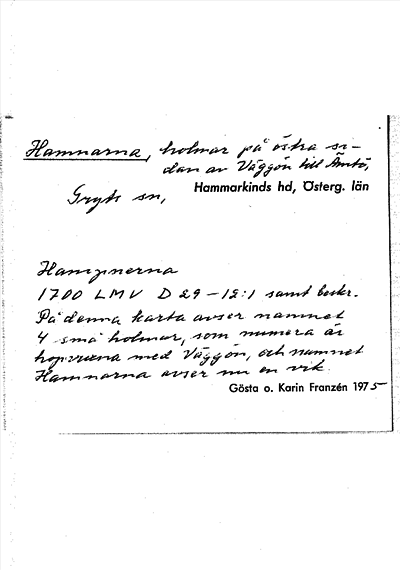 Hamnarna, holmar på östra si-
dan av Väggön till Ämtö,
Gryts sn,
Hammarkinds hd, Österg. län
Hampnerna
1700 LMV D 29-12:1 samt beskr.
På denna karta avser namnet
4 små holmar, som numera är
hopvuxna med Väggön, och namnet
Hamnarna avser nu en vik.
Gösta o. Karin Franzén 1975